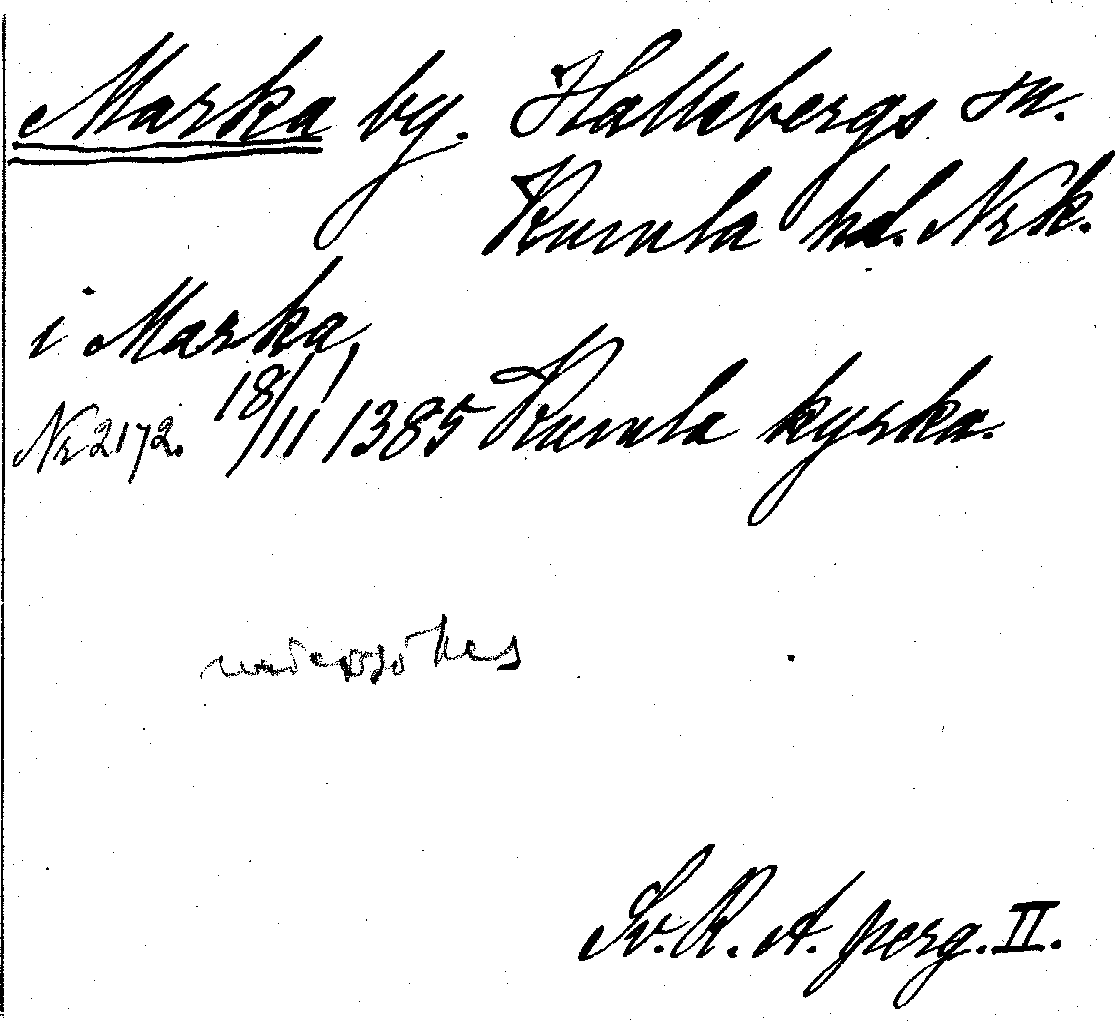 Marka by. Hallsbergs sn.
Kumla hd. Nrk.
i Marka
Nr 2172. 18/11 1385 Kumla kyrka.
undersökes
Sv. R. A. perg. II.